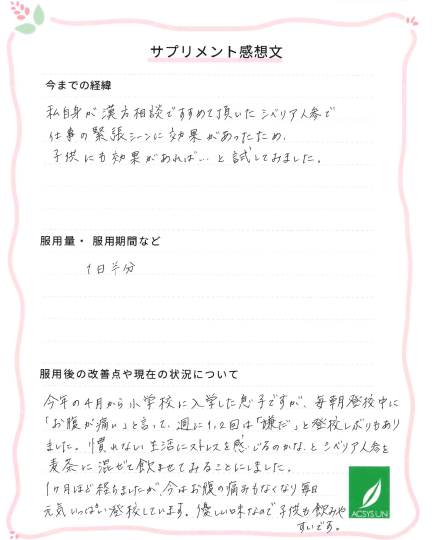 サプリメント感想文
今までの経緯
私自身が漢方相談ですすめて頂いたシベリア人参で
仕事の緊張シーンに効果があったため、
子供にも効果があれば… と試してみました。
服用量・ 服用期間など
1日半分
服用後の改善点や現在の状況について
今年の4月から小学校に入学した息子ですが、毎朝登校中に
「お腹が痛い」と言って、週に1,2回は「嫌だ」と登校しぶりもあり
ました。慣れない生活にストレスを感じるのかな、とシベリア人参を
麦茶に混ぜて飲ませてみることにしました。
1ヶ月ほど経ちましたが、今はお腹の痛みもなくなり毎日
元気いっぱい登校しています。優しい味なので子供も飲みや
すいです。
ACSYS UN